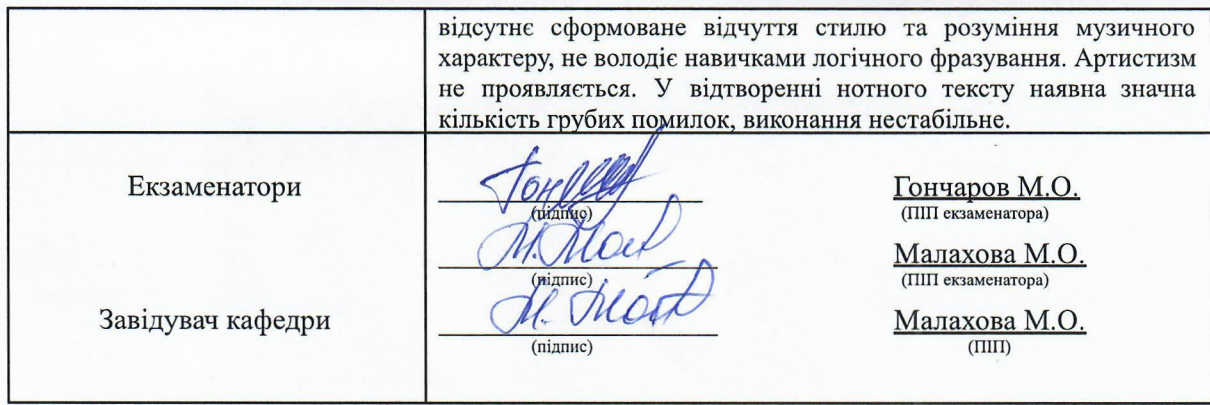 відсутнє сформоване відчуття стилю та розуміння музичного
характеру, не володіє навичками логічного фразування. Артистизм
не проявляється. У відтворенні нотного тексту наявна значна
кількість грубих помилок, виконання нестабільне.
Екзаменатори
Гончаров М.О.
(підпис)
(ПІП екзаменатора)
Малахова М.О.
(підпис)
(ПІП екзаменатора)
Завідувач кафедри
Малахова М.О.
(підпис)
(ПІП)